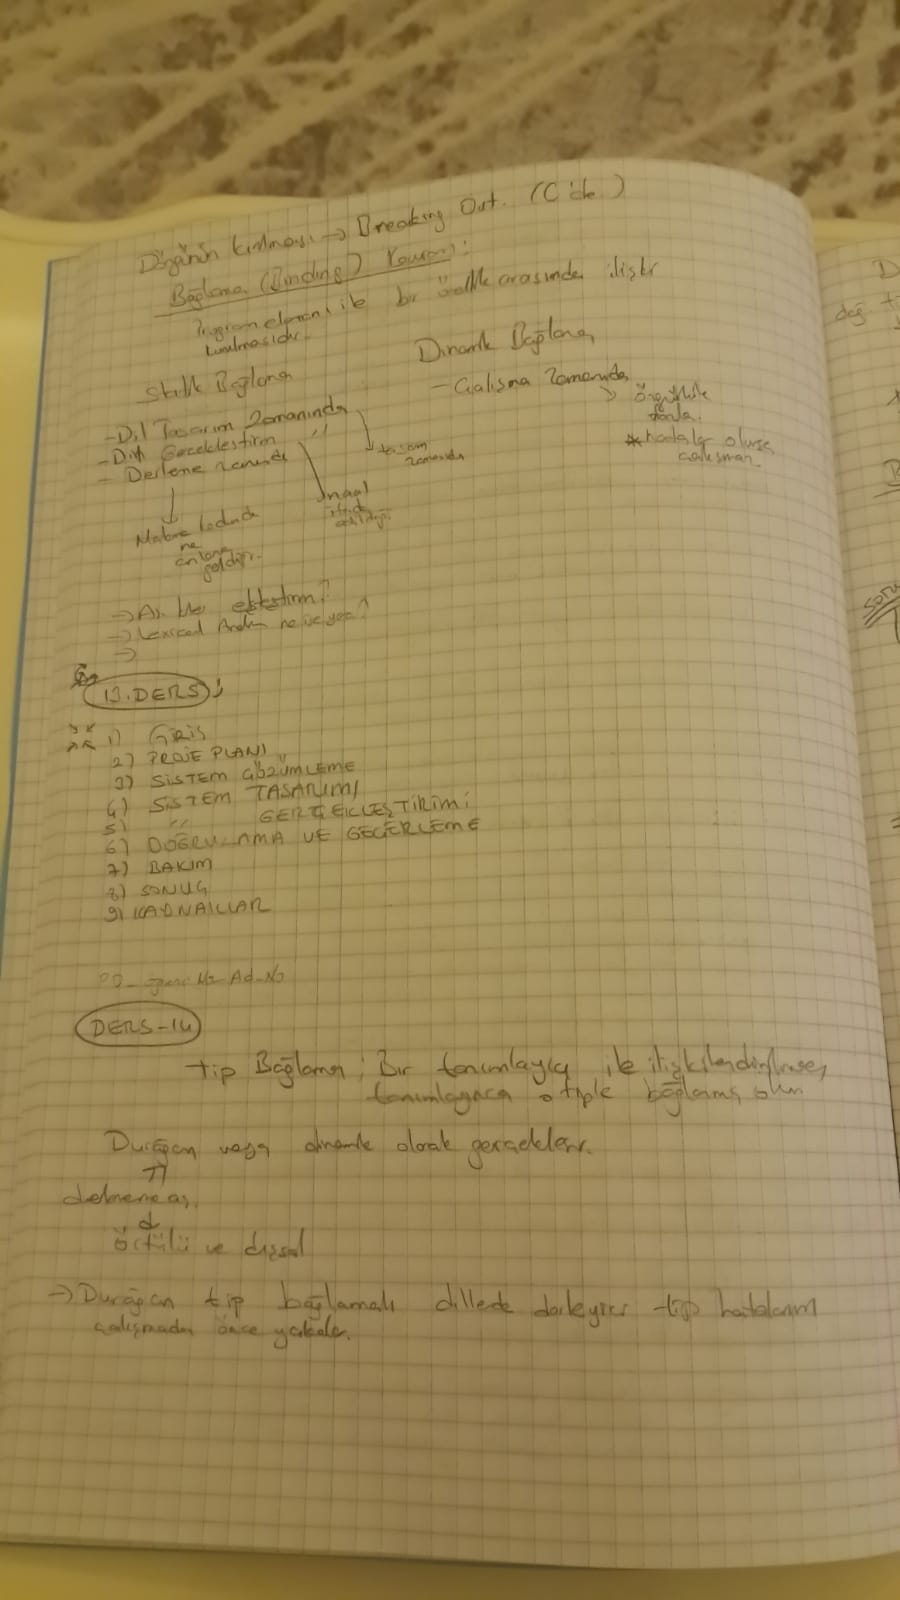 Döngünün kırılması → Breaking Out. (C'de)
Bağlama (Binding) Kavramı:
Program elemanı ile bir özellik arasında ilişki
kurulmasıdır.
Statik Bağlama
Dinamik Bağlama
- Dil Tasarım Zamanında
- Dil Gerçekleştirim
- Derleme zamanında
- Çalışma Zamanında
örgütlük
fazla.
* hatalar olursa
çalışmaz.
tasarım
zamanında
Makine kodunda
ne
anlama
geldiği.
nasıl
→ Lexical Analiz ne işe yarar?
→
13.DERS;
1) GİRİŞ
2) PROJE PLANI
3) SİSTEM ÇÖZÜMLEME
4) SİSTEM TASARIMI
5) " GERÇEKLEŞTİRİMİ
6) DOĞRULAMA VE GEÇERLEME
7) BAKIM
8) SONUÇ
9) KAYNAKLAR
Ad-No
DERS-14
Tip Bağlama; Bir tanımlayıcı ile ilişkilendirilirse,
tanımlayıcı o tiple bağlanmış olur
Durağan veya dinamik olarak gerçekleşir.
örtülü ve dışsal
→ Durağan tip bağlamalı dillerde derleyici tip hatalarını
çalışmadan önce yakalar.